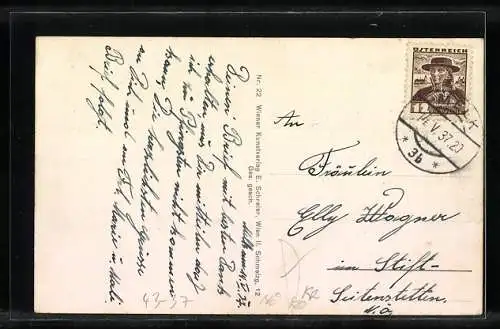 Melk am 14. V. 37
Deinen Brief mit besten Dank
erhalten, muß Dir mitteilen daß
ich zu Pfingsten nicht kommen
kann. Die herzlichsten Grüsse
an Dich und an Frl. Marie u. Mali.
Brief folgt.
Nr. 22 Wiener Kunstverlag E. Schreier, Wien II. Schmelzg. 12
Ges. gesch.
ÖSTERREICH
14. V. 37. 20
* 3b *
An
Fräulein
Elly Wagner
im Stift
Seitenstetten.
N.Ö.
43-37